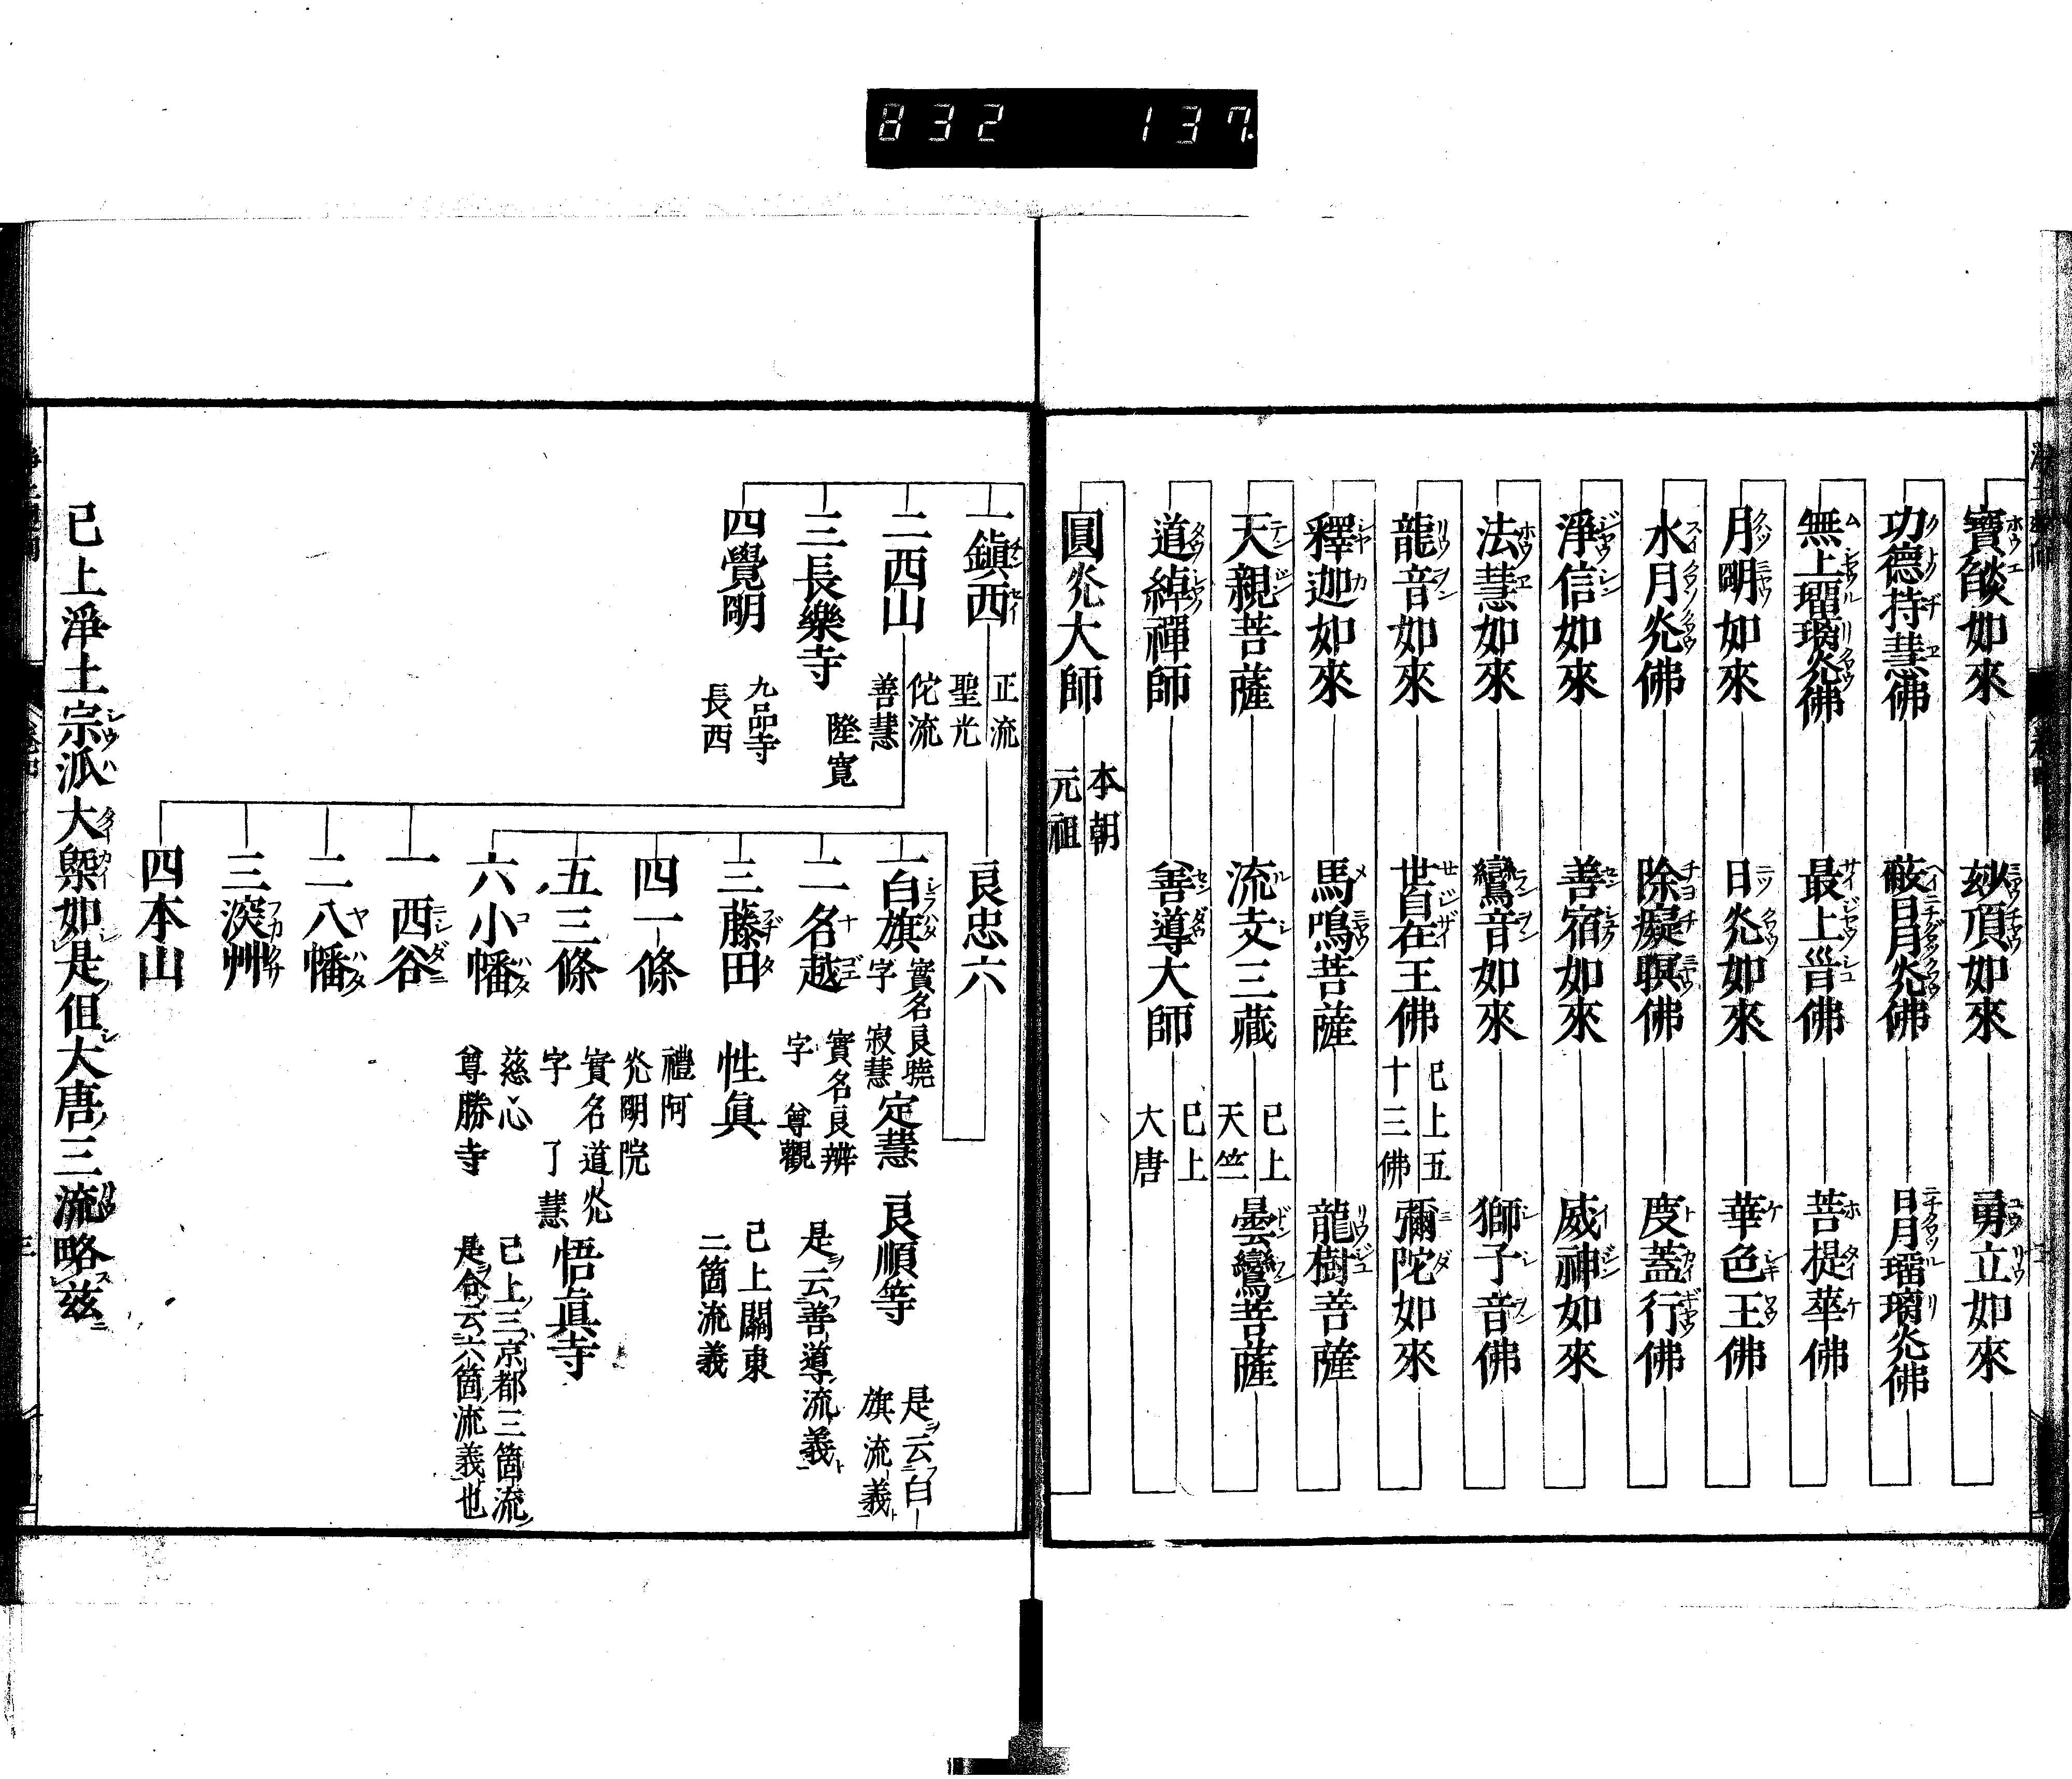 832 137
寶𦦨如來 玅頂如來 勇立如來
功德持慧佛 蔽日月灮佛 日月瑠璃灮佛
無上瑠璃灮佛 最上首佛 菩提華佛
月明如來 日灮如來 華色王佛
水月灮佛 除癡瞑佛 度蓋行佛
淨信如來 善宿如來 威神如來
法慧如來 鸞音如來 獅子音佛
龍音如來 世自在王佛 已上五十三佛 彌陀如來
釋迦如來 馬鳴菩薩 龍樹菩薩
天親菩薩 流支三藏 已上天竺 曇鸞菩薩
道綽禪師 善導大師 已上大唐
圓灮大師 本朝元祖
一鎮西 正流 聖光 良忠六
二西山 佗流 善慧
三長樂寺 隆寬
四覺明 九品寺 長西
一白旗 實名良曉 字寂慧 定慧 良順等 是云白旗流義
二名越 實名良辨 字尊觀 是云善導流義
三藤田 性眞 已上關東二箇流義
四一條 禮阿 灮明院
五三條 實名道灮 字了慧 悟眞寺
六小幡 慈心 尊勝寺 已上三京都三箇流 是合云六箇流義也
一西谷
二八幡
三深艸
四本山
已上淨土宗派大槩如是但大唐三流略茲